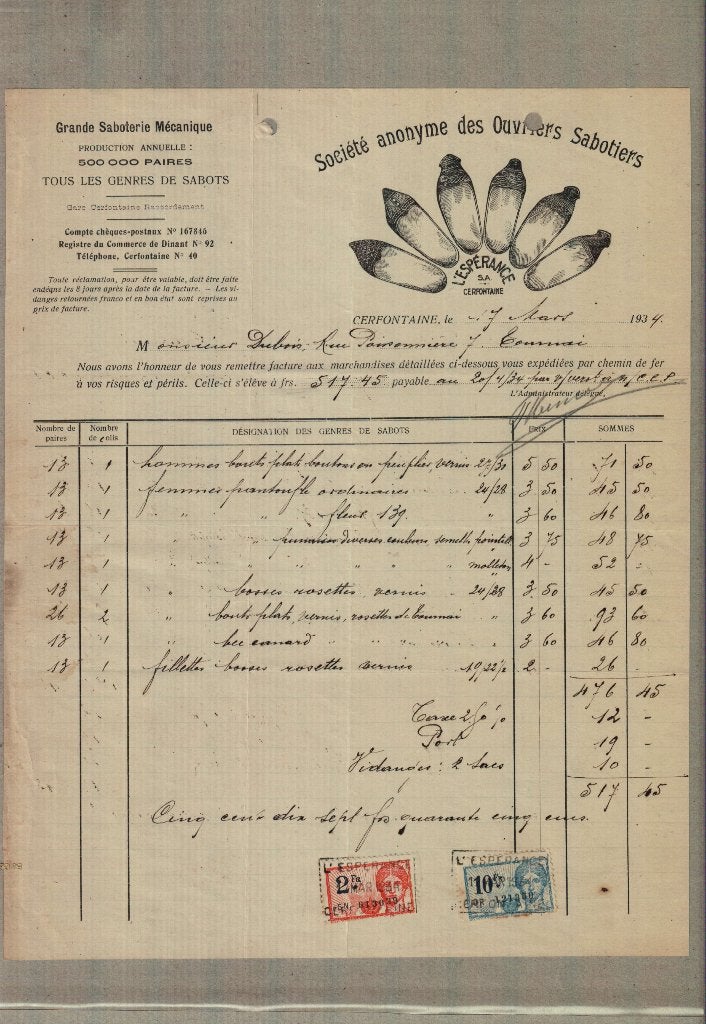 Grande Saboterie Mécanique
PRODUCTION ANNUELLE :
500 000 PAIRES
TOUS LES GENRES DE SABOTS
Gare Cerfontaine Raccordement
Compte chèques-postaux N° 167846
Registre du Commerce de Dinant N° 92
Téléphone, Cerfontaine N° 40
Toute réclamation, pour être valable, doit être faite
endéans les 8 jours après la date de la facture. – Les vi-
danges retournées franco et en bon état sont reprises au
prix de facture.
Société anonyme des Ouvriers Sabotiers
L'ESPÉRANCE
S.A.
CERFONTAINE
CERFONTAINE, le 17 Mars 1934.
Monsieur Dubois, Rue Poissonnière 7. Tournai
Nous avons l'honneur de vous remettre facture aux marchandises détaillées ci-dessous vous expédiées par chemin de fer
à vos risques et périls. Celle-ci s'élève à frs. 517-45 payable au 20/4/34 par
L'Administrateur délégué,
Nombre de paires Nombre de colis DÉSIGNATION DES GENRES DE SABOTS PRIX SOMMES
13 1 hommes bouts plats boutons en peuplier, vernis 27/30 5 50 71 50
13 1 femmes pantoufle ordinaires 24/28 3 50 45 50
13 1 " " fleur 139 " 3 60 46 80
13 1 " diverses couleurs semelle 3 75 48 75
13 1 " " " " " molleton 4 - 52 -
13 1 " bosses rosettes, vernis 24/28 3 50 45 50
26 2 " bouts plats, vernis, rosettes de Tournai " 3 60 93 60
13 1 " bec canard " " " " 3 60 46 80
13 1 fillettes bosses rosettes vernis 19/22 ½ 2 - 26 -
476 45
Taxe 2,50 % 12 -
Port 19 -
Vidanges : 2 sacs 10 -
517 45
Cinq cent dix sept frs quarante cinq cms.
L'ESPERANCE
2 Fr
MAR
CERFONTAINE
L'ESPERANCE
10 Fr